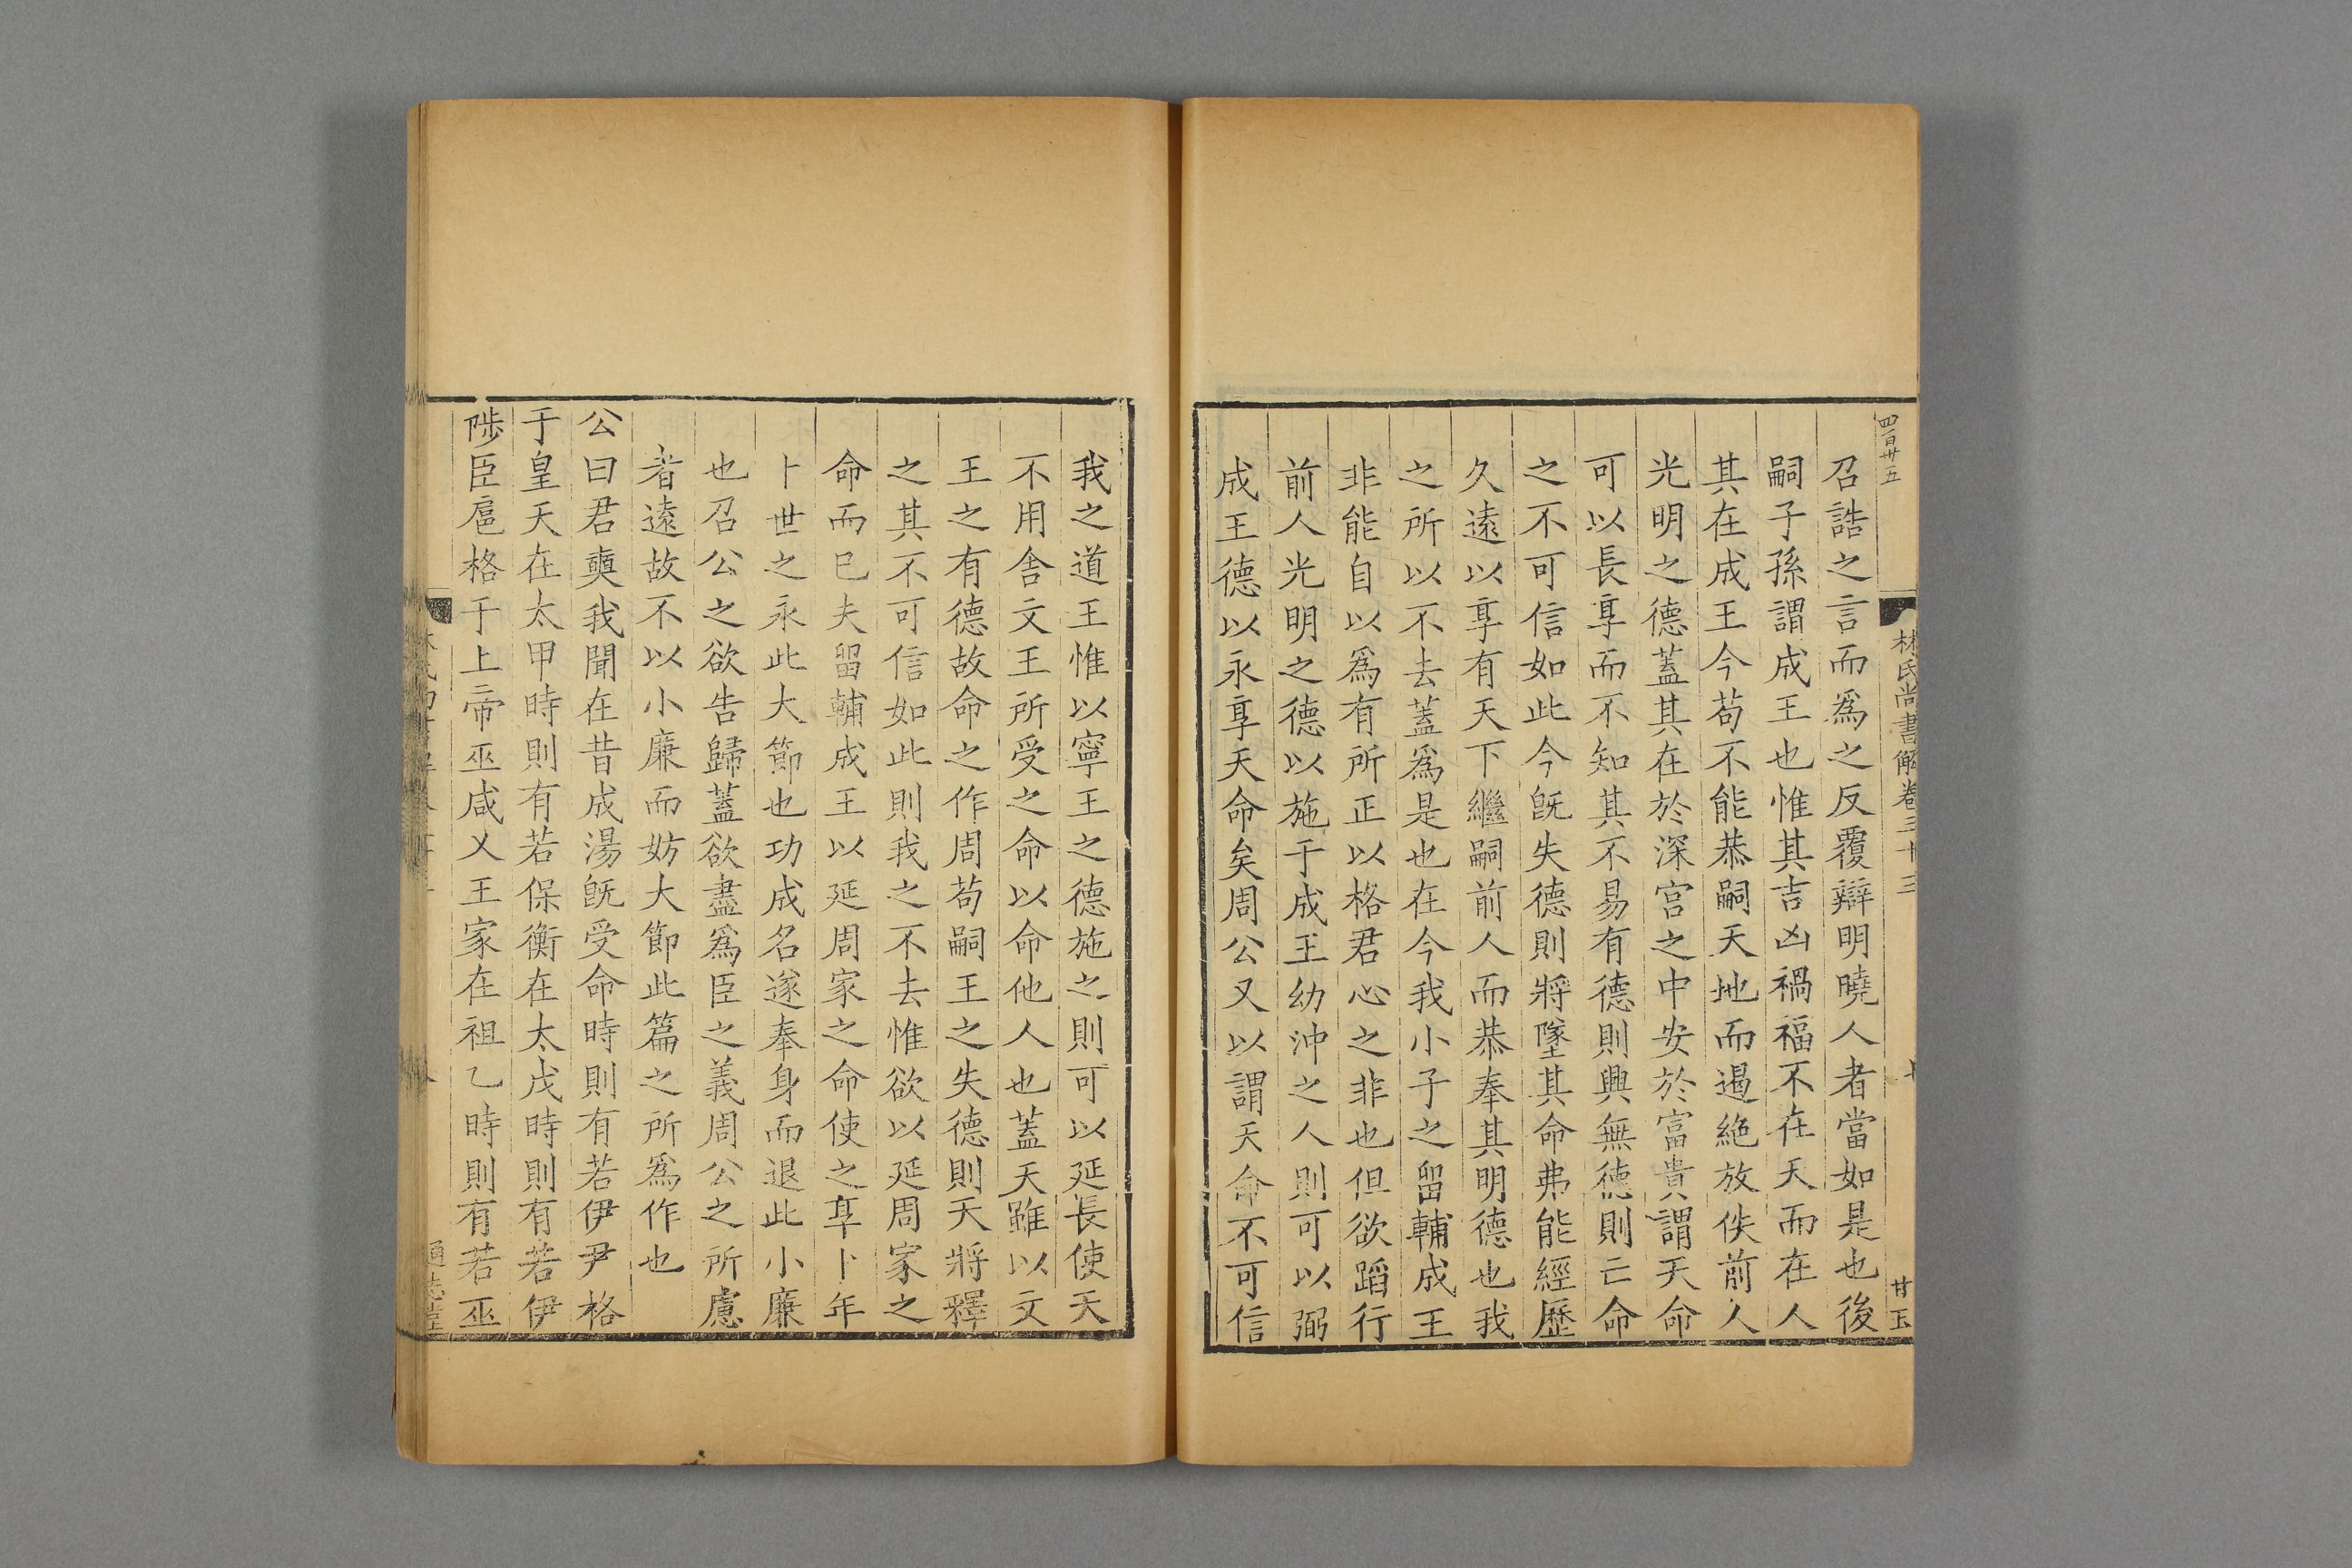 四百廿五
林氏尚書解卷三十三
甘玉
召誥之言而爲之反覆辯明曉人者當如是也後
嗣子孫謂成王也惟其吉凶禍福不在天而在人
其在成王今苟不能恭嗣天地而遏絶放佚前人
光明之德蓋其在於深宮之中安於富貴謂天命
可以長享而不知其不易有德則興無德則亡命
之不可信如此今旣失德則將墜其命弗能經歷
久遠以享有天下繼嗣前人而恭奉其明德也我
之所以不去蓋爲是也在今我小子之留輔成王
非能自以爲有所正以格君心之非也但欲蹈行
前人光明之德以施于成王幼沖之人則可以弼
成王德以永享天命矣周公又以謂天命不可信
我之道王惟以寧王之德施之則可以延長使天
不用舍文王所受之命以命他人也蓋天雖以文
王之有德故命之作周苟嗣王之失德則天將釋
之其不可信如此則我之不去惟欲以延周家之
命而已夫留輔成王以延周家之命使之享卜年
卜世之永此大節也功成名遂奉身而退此小廉
也召公之欲告歸蓋欲盡爲臣之義周公之所慮
者遠故不以小廉而妨大節此篇之所爲作也
公曰君奭我聞在昔成湯旣受命時則有若伊尹格
于皇天在太甲時則有若保衡在太戊時則有若伊
陟臣扈格于上帝巫咸乂王家在祖乙時則有若巫
通志堂